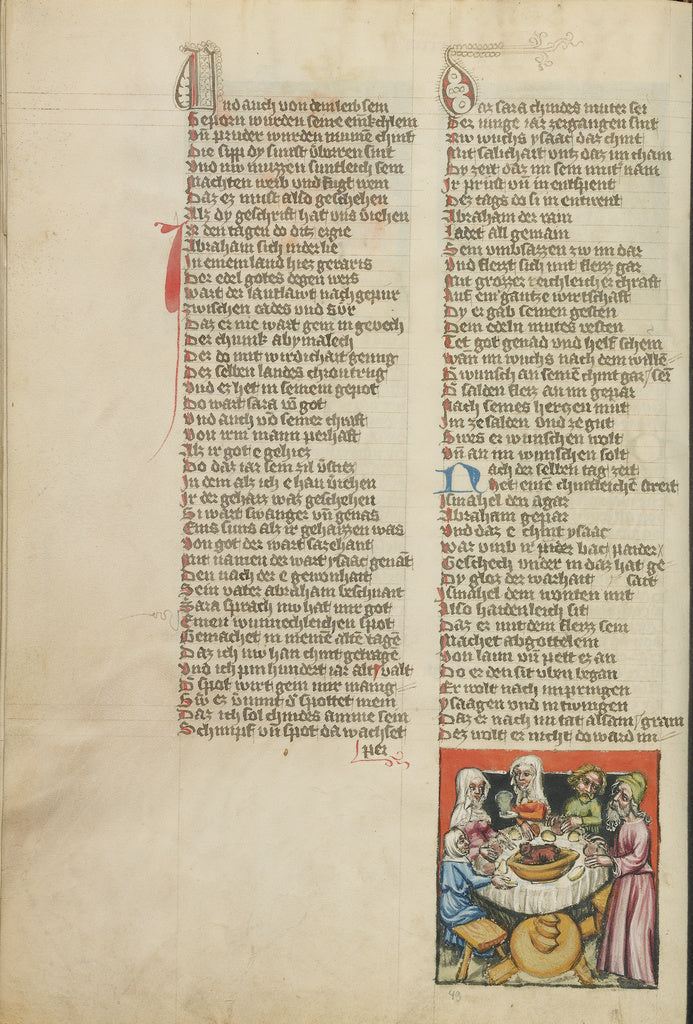 Und auch von dem leib sein
Geporn wurden seine enikchlein
Vn̄ pruder wurden mumen chint
Die sipp dy sunst vͤbarren sint
Vnd nw muzzen suntleich sein
Machten weib vnd fugt wein
Daz ez must also geschehen
Alz dy geschrift hat vns v̓iehen
In den tagen do ditz ergie
Abraham sich niderlie
In einem land hiez geraris
Der edel gotes degen weis
Wart der lantlawt nachgepur
Zwischen cades vnd sur
Daz er nie wart gein in gevech
Der chunik abymalech
Der do mit wirdichait genug
Der selben landes chron trug
Vnd ez het in seinem gepot
Do wart sara vō got
Vnd auch vō seiner chraft
Von irm mann perhaft
Als ir got e gehiez
Do daz iar sein zil v̓stiez
In dem alz ich e han v̓iehen
Ir der gehaiz waz geschehen
Si wart swanger vn̄ genas
Eins suns alz ir gehaizzen was
Von got der wart sazehant
Mit namen der wart ysaac genāt
Den nach der e gewonhait
Sein vater abraham beschnait
Sara sprach nw hat mir got
Einen wunnechleichen spot
Gemachet in meinē altē tagē
Daz ich nw han chint getragē
Vnd ich pin hundert iar alt
D̓ spot wirt gein mir manig valt
Sw̓ ez v̓nimt d̓ spottet mein
Daz ich sol chindes amme sein
Schimpf vn̄ spot da wachset
per
Daz sara chindes muter sei
Der iunge iar zergangen sint
Nw wuchs ysaac daz chint
Mit salichait vntz daz im cham
Dy zeit daz im sein mut nam
Ir prust vn̄ in entspent
Der tags do si in entwent
Abraham der rain
Ladet all gemain
Sein vmbsazzen zw im dar
Vnd fleiz sich mit fleiz gar
Mit grozzer reichleicher chraft
Auf ein gantze wirtschaft
Dy er gab seinen gesten
Dem edeln mutes vesten
Tet got genad vnd helf schein
Wan im wuchs nach dem willē
D̓ wunsch an seinē chint gar sein
D̓ salden fleiz an im gepar
Nach seines hertzen mut
Im ze salden vnd ze gut
Swes er wunschen wolt
Vn̄ an im wunschen solt
Nach der selben tag zeit
Het einē chintleichē streit
Ismahel den agar
Abraham gepar
Vnd daz e chint ysaac
War vmb ir pider bac paider
Geschech vnder in daz hat ge
Dy gloz der warhait sait
Ismahel dem wonten mit
Also haidenleich sit
Daz er mit dem fleiz sein
Machet abgottelein
Von laim vn̄ pett ez an
Do er den sit vben began
Er wolt nach im pringen
Ysaagen vnd in twingen
Daz er nach im tat alsam gram
Dez wolt er nicht do ward im
49